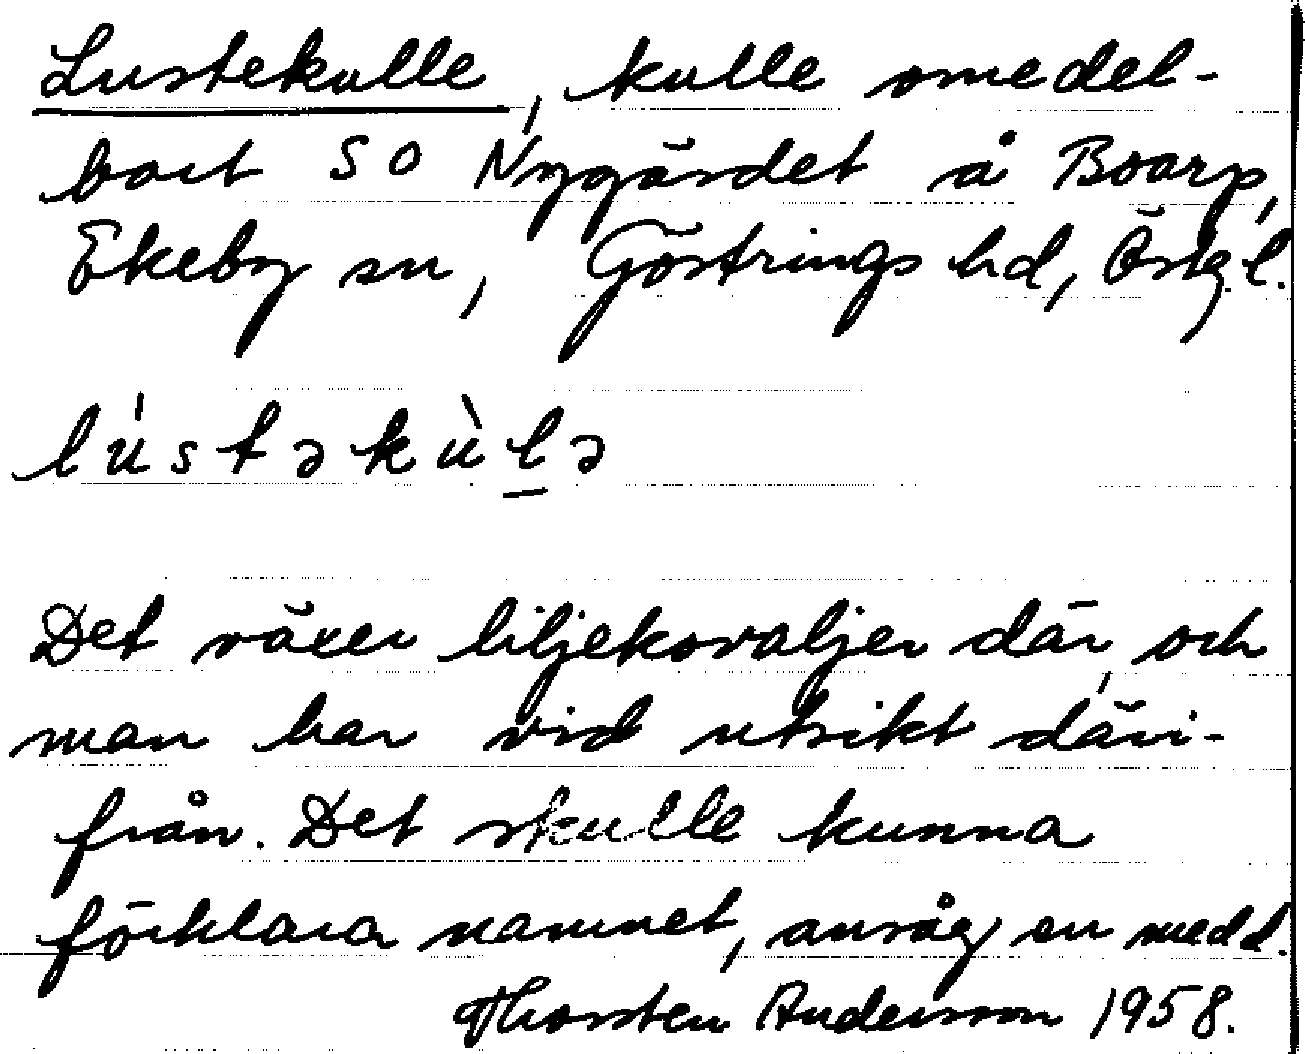 Lustekulle, kulle omedel-
bart SO Nygärdet å Boarp,
Ekeby sn, Göstrings hd, Östg.l.
lústəkùlə
Det växer liljekonvaljer där, och
man har vid utsikt däri-
från. Det skulle kunna
förklara namnet, ansåg en medd.
Thorsten Andersson 1958.